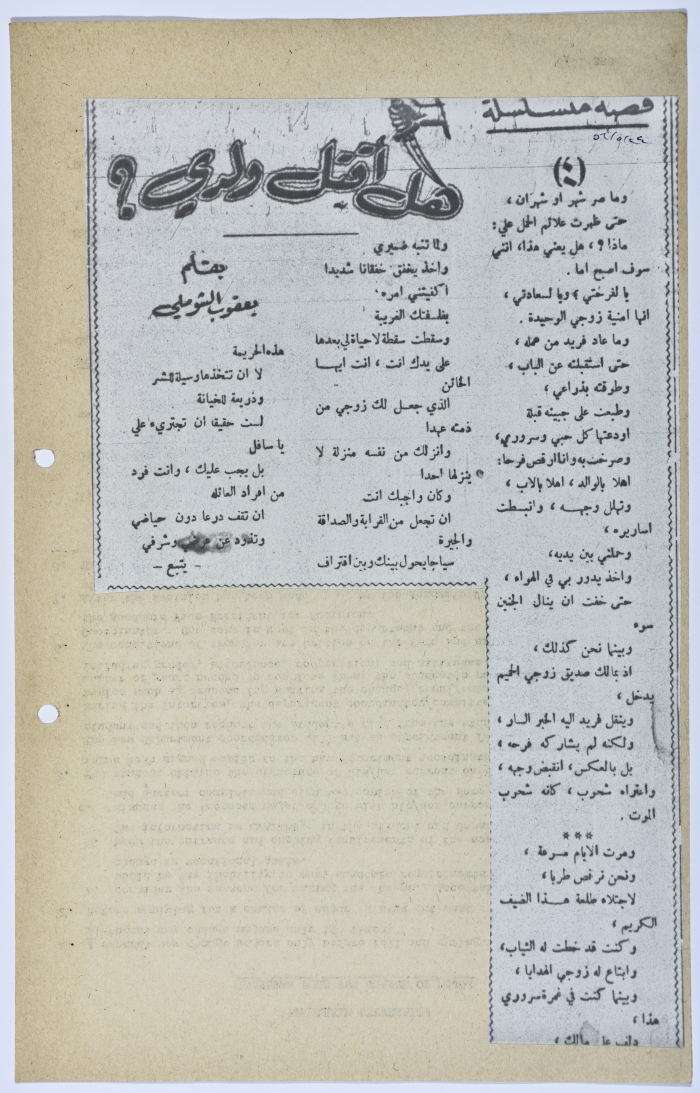 قصة متسلسلة
هل أقتل ولدي ؟
بقلم
يعقوب الشوملي
(٤)
وما صر شهر او شهران ،
حتى ظهرت علائم الحمل علي :
ماذا ؟ ، هل يعني هذا، انني
سوف اصبح اما .
يا لفرحتي ، ويا لسعادتي ،
انها امنية زوجي الوحيدة .
وما عاد فريد من عمله ،
حتى استقبلته عن الباب ،
وطوقته بذراعي ،
وطبعت على جبينه قبلة
اودعتها كل حبي وسروري،
وصرخت به وانا ارقص فرحا :
اهلا بالوالد ، اهلا بالاب ،
وتهلل وجهه ، وانبسطت
اساريره ،
وحملني بين يديه،
واخذ يدور بي في الهواء ،
حتى خفت ان ينال الجنين
سوء
وبينما نحن كذلك ،
اذ بمالك صديق زوجي الحميم
يدخل ،
وينقل فريد اليه الخبر السار ،
ولكنه لم يشاركه فرحه ،
بل بالعكس، انقبض وجهه ،
واعتراه شحوب ، كانه شحوب
الموت .
***
ومرت الايام مسرعة ،
ونحن نرقص طربا ،
لاجتلاء طلعة هذا الضيف
الكريم ،
وكنت قد خطت له الثياب،
وابتاع له زوجي الهدايا ،
وبينما كنت في غمرة سروري
هذا ،
دلف علي مالك ،
ولما تنبه ضميري
واخذ يخفق خفقانا شديدا
اكفيتني امره
بفلسفتك الغريبة
وسقطت سقطة لا حياة لي بعدها
على يدك انت ، انت ايها
الخائن
الذي جعل لك زوجي من
ذمته عهدا
وانزلك من نفسه منزلة لا
ينزلها احدا
وكان واجبك انت
ان تجعل من القرابة والصداقة
والجيرة
سياجا يحول بينك وبين اقتراف
هذه الجريمة
لا ان تتخذها وسيلة للشر
وذريعة للخيانة
لست حقيقا ان تجتريء علي
يا سافل
بل يجب عليك ، وانت فرد
من افراد العائلة
ان تقف درعا دون حياضي
وتذود عن عرضي وشرفي
- يتبع -